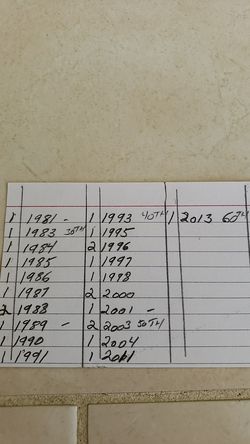 1 1981 -
1 1983 30TH
1 1984
1 1985
1 1986
1 1987
2 1988
1 1989 -
1 1990
1 1991
1 1993 40TH
1 1995
2 1996
1 1997
1 1998
2 2000
1 2001 -
2 2003 50TH
1 2004
1 2011
1 2013 60TH